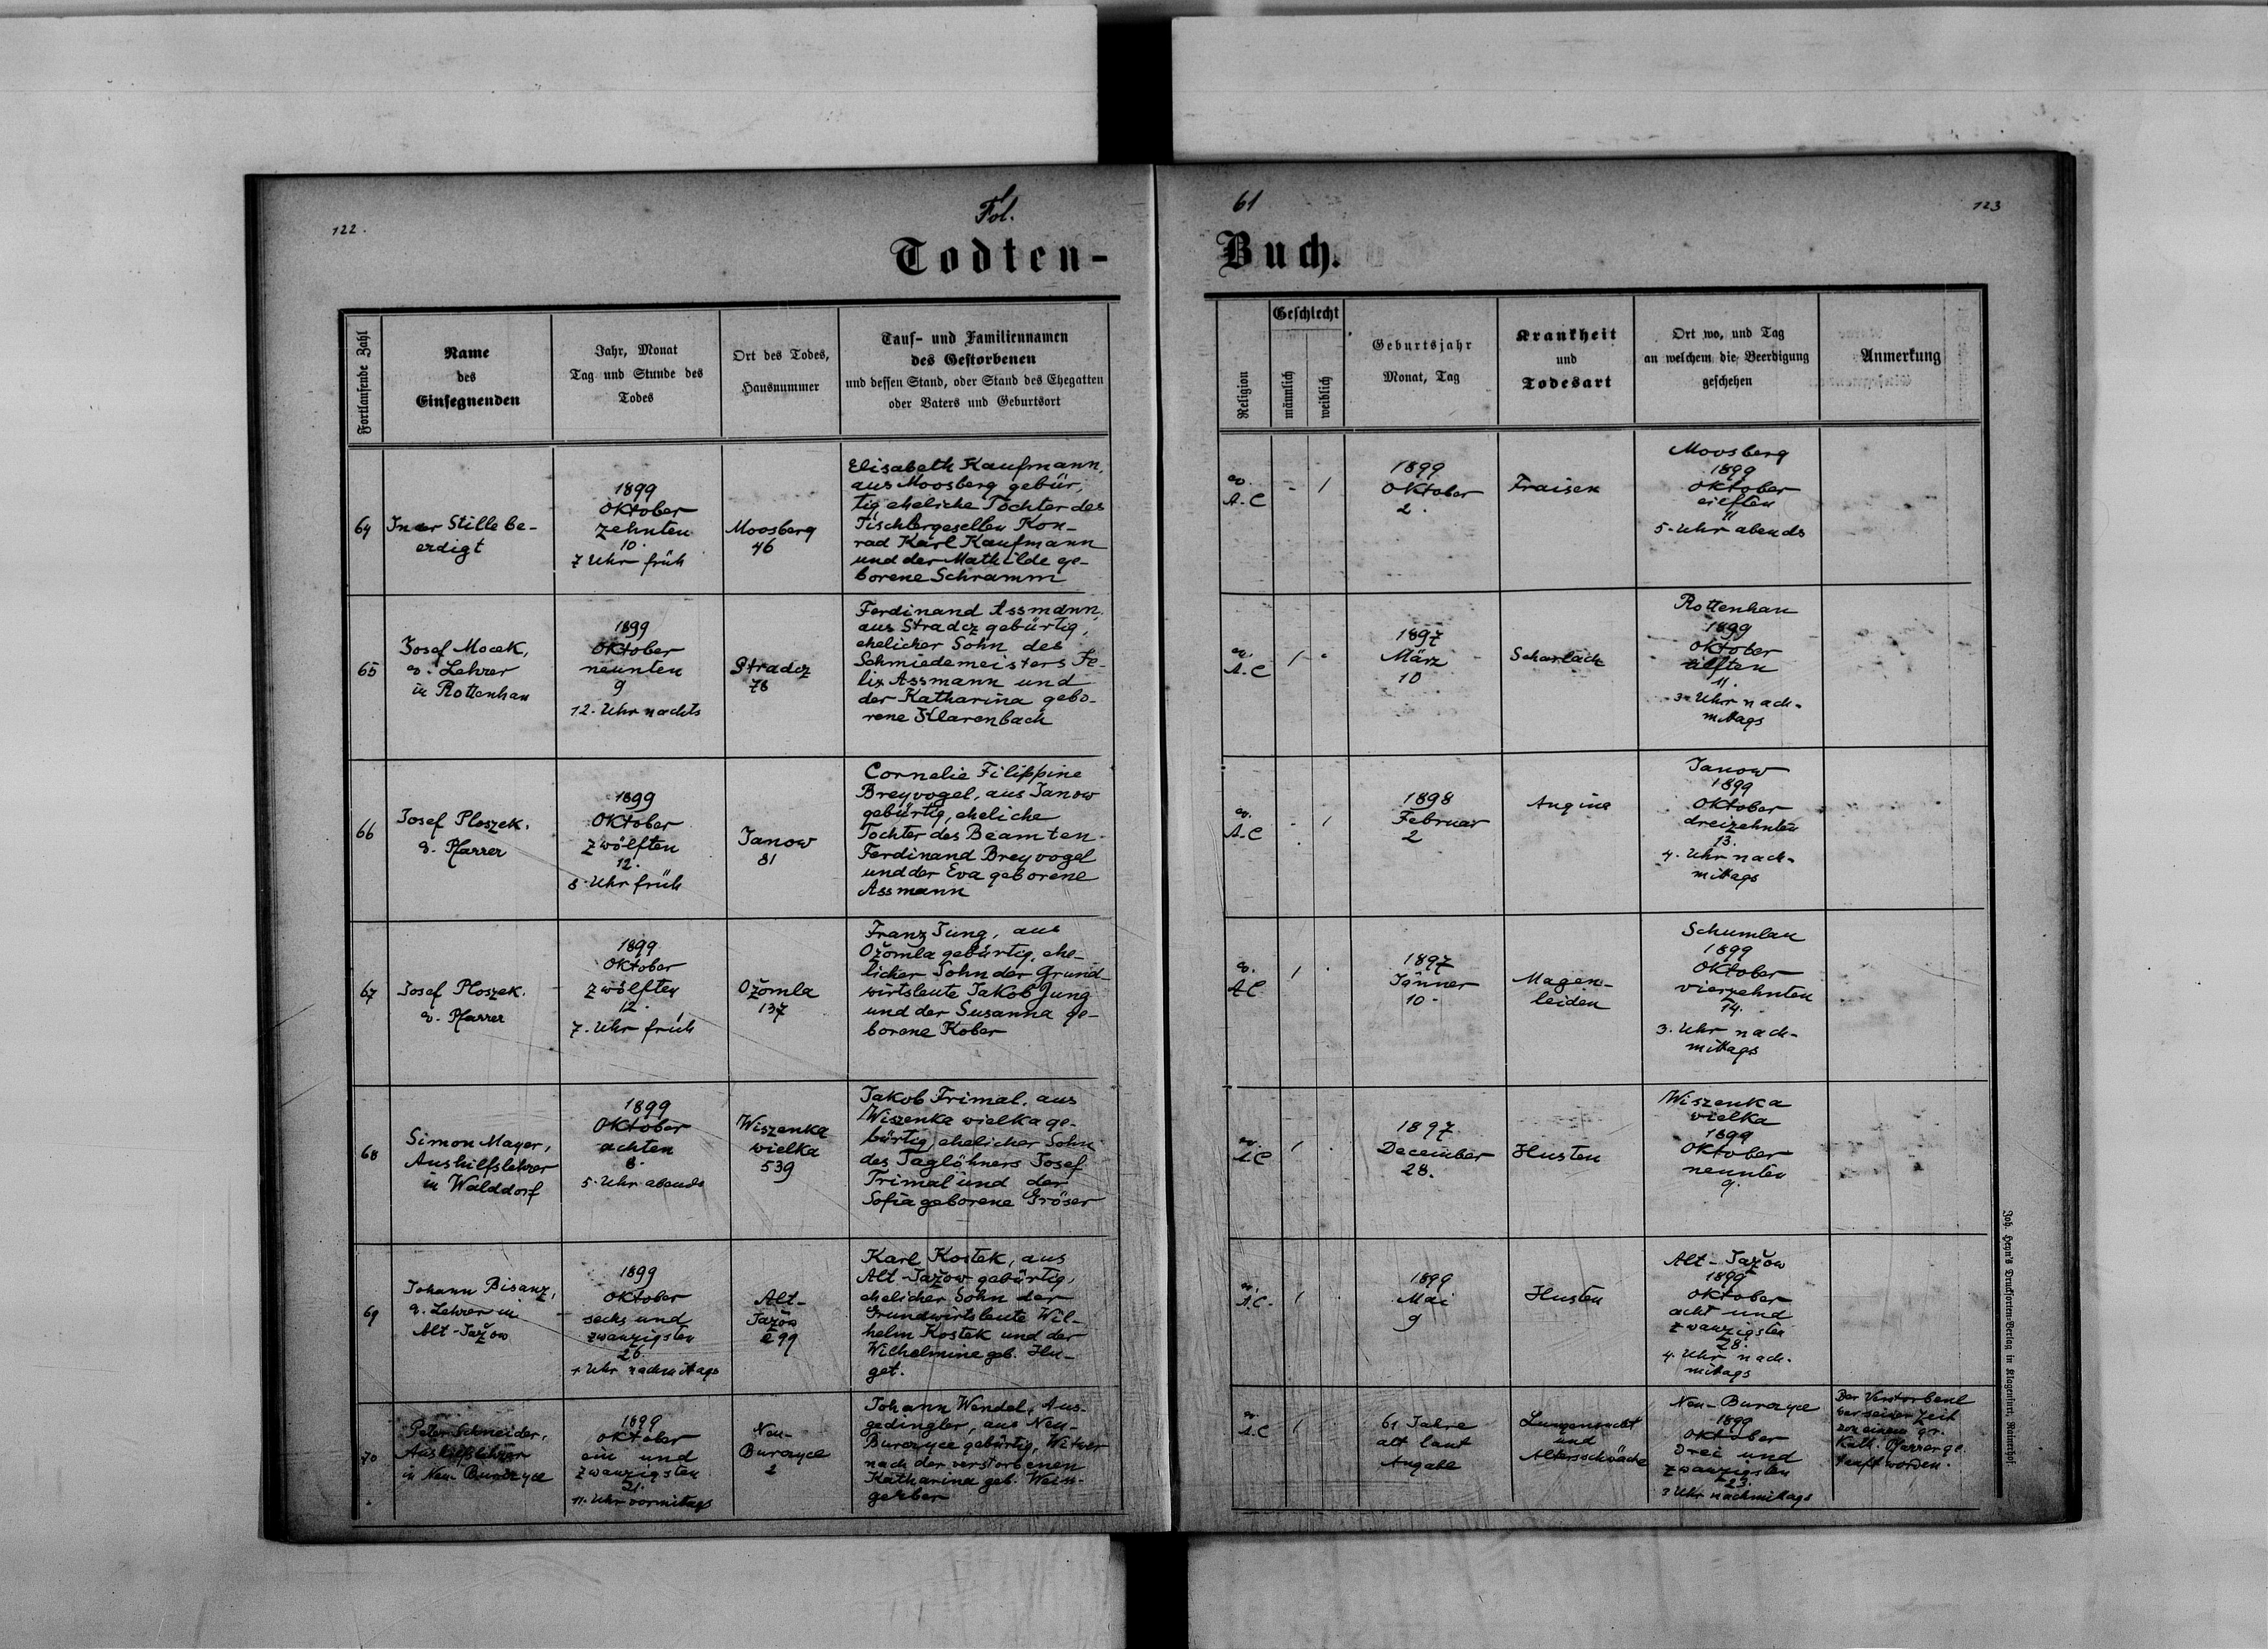 122.
Fol.
61
123
Todten-
Buch.
Fortlaufende Zahl
Name
des
Einsegnenden
Jahr, Monat
Tag und Stunde des
Todes
Ort des Todes,
Hausnummer
Tauf- und Familiennamen
des Gestorbenen
und dessen Stand, oder Stand des Ehegatten
oder Vaters und Geburtsort
Religion
Geschlecht
männlich
weiblich
Geburtsjahr
Monat, Tag
Krankheit
und
Todesart
Ort wo, und Tag
an welchem die Beerdigung
geschehen
Anmerkung
64
In der Stille be-
erdigt
1899
Oktober
zehnten
10.
7 Uhr früh
Moosberg
46
Elisabeth Kaufmann,
aus Moosberg gebür,
tig eheliche Tochter des
Tischlergesellen Kon-
rad Karl Kaufmann
und der Mathilde ge-
borene Schramm
ev.
A.C
- /
1899
Oktober
2.
Fraisen
Moosberg
1899
Oktober
eilften
11
5. Uhr abends
65
Josef Mocek,
ev. Lehrer
in Rottenhan
1899
Oktober
neunten
9
12. Uhr nachts
Stradcz
78
Ferdinand Assmann,
aus Stradcz gebürtig,
ehelicher Sohn des
Schmiedemeisters Fe-
lix Assmann und
der Katharina gebo-
rene Klarenbach
ev.
A.C
/ -
1897
März
10
Scharlach
Rottenhan
1899
Oktober
eilften
11.
3. Uhr nach-
mittags
66
Josef Ploszek.
ev. Pfarrer
1899
Oktober
zwölften
12.
8. Uhr früh
Janow
81
Cornelie Filippine
Breyvogel, aus Janow
gebürtig, eheliche
Tochter des Beamten
Ferdinand Breyvogel
und der Eva geborene
Assmann
ev.
A.C
- /
1898
Februar
2
Angina
Janow
1899
Oktober
dreizehnten
13.
4. Uhr nach-
mittags
67
Josef Ploszek.
ev. Pfarrer
1899
Oktober
zwölften
12.
7. Uhr früh
Ožomla
137
Franz Jung, aus
Ožomla gebürtig, ehe-
licher Sohn der Grund-
wirtsleute Jakob Jung
und der Susanna ge-
borene Kober
ev.
A.C
/ .
1897
Jänner
10.
Magen-
leiden
Schumlau
1899
Oktober
vierzehnten
14.
3. Uhr nach-
mittags
68
Simon Mayer,
Aushilfslehrer
in Walddorf
1899
Oktober
achten
8.
5. Uhr abends
Wiszenka
wielka
539
Jakob Trimal, aus
Wiszenka wielka ge-
bürtig ehelicher Sohn
des Taglöhners Josef
Trimal und der
Sofia geborene Gröser
ev.
A.C
/ .
1897
December
28.
Husten
Wiszenka
wielka
1899
Oktober
neunten
9.
69
Johann Bisanz,
ev. Lehrer in
Alt-Jažow
1899
Oktober
sechs und
zwanzigsten
26.
Uhr nachmittags
Alt-
Jažow
99
Karl Kostek, aus
Alt-Jažow gebürtig,
ehelicher Sohn der
Grundwirtsleute Wil-
helm Kostek und der
Wilhelmine geb. Hu-
get.
ev.
A.C.
/ .
1899
Mai
9
Husten
Alt-Jažow
1899
Oktober
acht und
zwanzigsten
28.
4. Uhr nach-
mittags
70
Peter Schneider,
Aushilfslehrer
in Neu-Burczyce
1899
Oktober
ein und
zwanzigsten
21.
11. Uhr vormittags
Neu-
Burczyce
2
Johann Wendel, Aus-
gedingler, aus Neu-
Burczyce gebürtig, Witwer
nach der verstorbenen
Katharina geb. Weiss-
gerber
ev.
A.C
/
61 Jahre
alt laut
Angabe
Lungensucht
und
Altersschwäche
Neu-Burczyce
1899
Oktober
drei und
zwanzigsten
23.
3 Uhr nachmittags
Der Verstorbene
war seiner Zeit
von einem gr.
Kath. Pfarrer ge-
tauft worden.
Joh. Heyn's Drucksorten-Verlag in Klagenfurt, Rainerhof